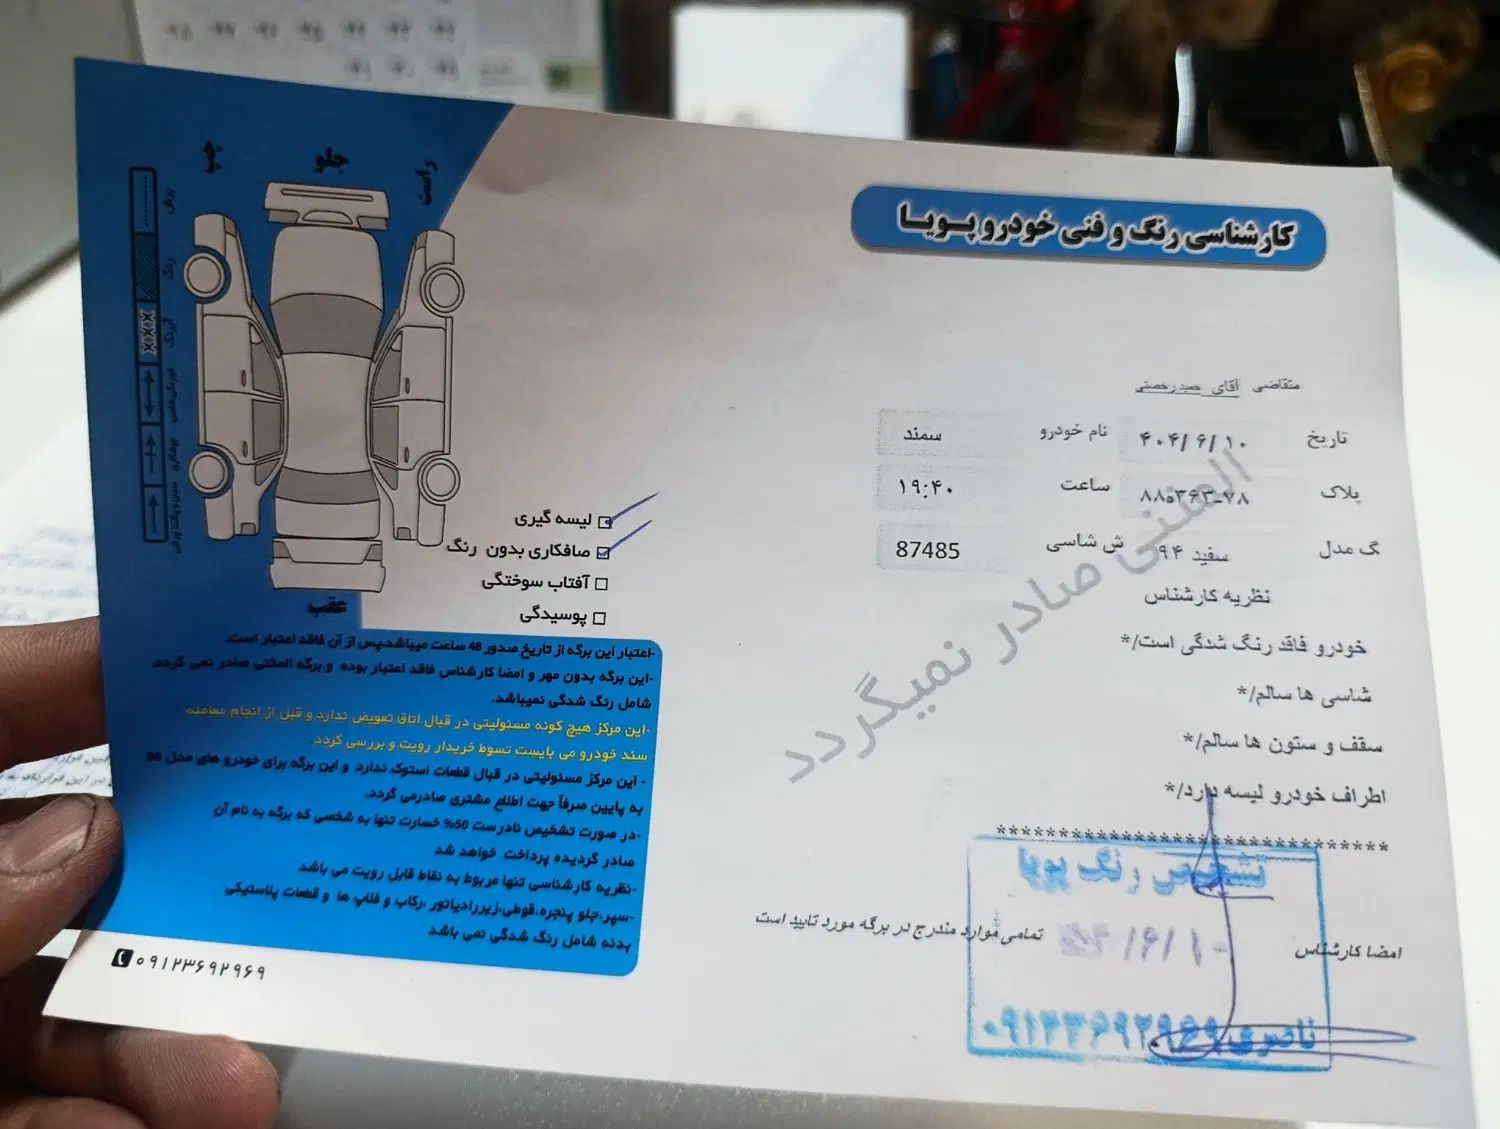 کارشناسی رنگ و فنی خودرو پویا
متقاضی آقای
تاریخ ۴۰۴/۶/۱۰ نام خودرو سمند
پلاک ساعت ۱۹:۴۰
گ مدل سفید ۹۴ ش شاسی 87485
نظریه کارشناس
خودرو فاقد رنگ شدگی است/*
شاسی ها سالم/*
سقف و ستون ها سالم/*
اطراف خودرو لیسه دارد/*
********************************
المثنی صادر نمیگردد
تشخیص رنگ پویا
امضا کارشناس
تمامی موارد مندرج در برگه مورد تایید است
ناصری ۰۹۱۲۳۶۹۲۹۶۹
چپ
جلو
راست
برش
رنگ
آبرنگ
عقب
لیسه گیری
صافکاری بدون رنگ
آفتاب سوختگی
پوسیدگی
-اعتبار این برگه از تاریخ صدور 48 ساعت میباشد.پس از آن فاقد اعتبار است.
-این برگه بدون مهر و امضا کارشناس فاقد اعتبار بوده و برگه المثنی صادر نمی گردد.
شامل رنگ شدگی نمیباشد.
-این مرکز هیچ گونه مسئولیتی در قبال اتاق تعویض ندارد و قبل از انجام معامله
سند خودرو می بایست تسوط خریدار رویت و بررسی گردد.
- این مرکز مسئولیتی در قبال قطعات استوک ندارد و این برگه برای خودرو های مدل 86
به پایین صرفاً جهت اطلع مشتری صادرمی گردد.
-در صورت تشخیص نادرست 50% خسارت تنها به شخصی که برگه به نام آن
صادر گردیده پرداخت خواهد شد
-نظریه کارشناسی تنها مربوط به نقاط قابل رویت می باشد
-سپر،جلو پنجره،قوطی،زیررادیاتور ،رکاب و فلاپ ها و قطعات پلاستیکی
بدنه شامل رنگ شدگی نمی باشد
۰۹۱۲۳۶۹۲۹۶۹